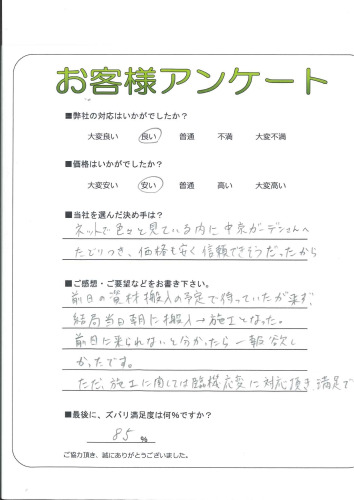 お客様アンケート
■弊社の対応はいかがでしたか?
大変良い 良い 普通 不満 大変不満
■価格はいかがでしたか?
大変安い 安い 普通 高い 大変高い
■当社を選んだ決め手は?
ネットで色々と見ている内に中京ガーデンさんへ
たどりつき、価格も安く信頼できそうだったから
■ご感想・ご要望などをお書き下さい。
前日の資材搬入の予定で待っていたが来ず、
結局当日朝に搬入→施工となった。
前日に来られないと分かったら一報欲し
かったです。
ただ、施工に関しては臨機応変に対応頂き満足で
■最後に、ズバリ満足度は何%ですか?
85 %
ご協力頂き、誠にありがとうございました。